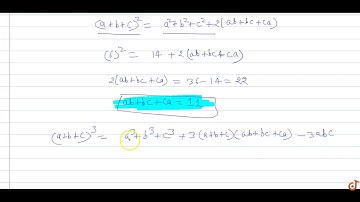 (a+b+c)² = a²+b²+c²+2(ab+bc+ca)
(6)² = 14 + 2(ab+bc+ca)
2(ab+bc+ca) = 36-14 = 22
ab+bc+ca = 11
(a+b+c)³ = a³+b³+c³+3(a+b+c)(ab+bc+ca) -3abc